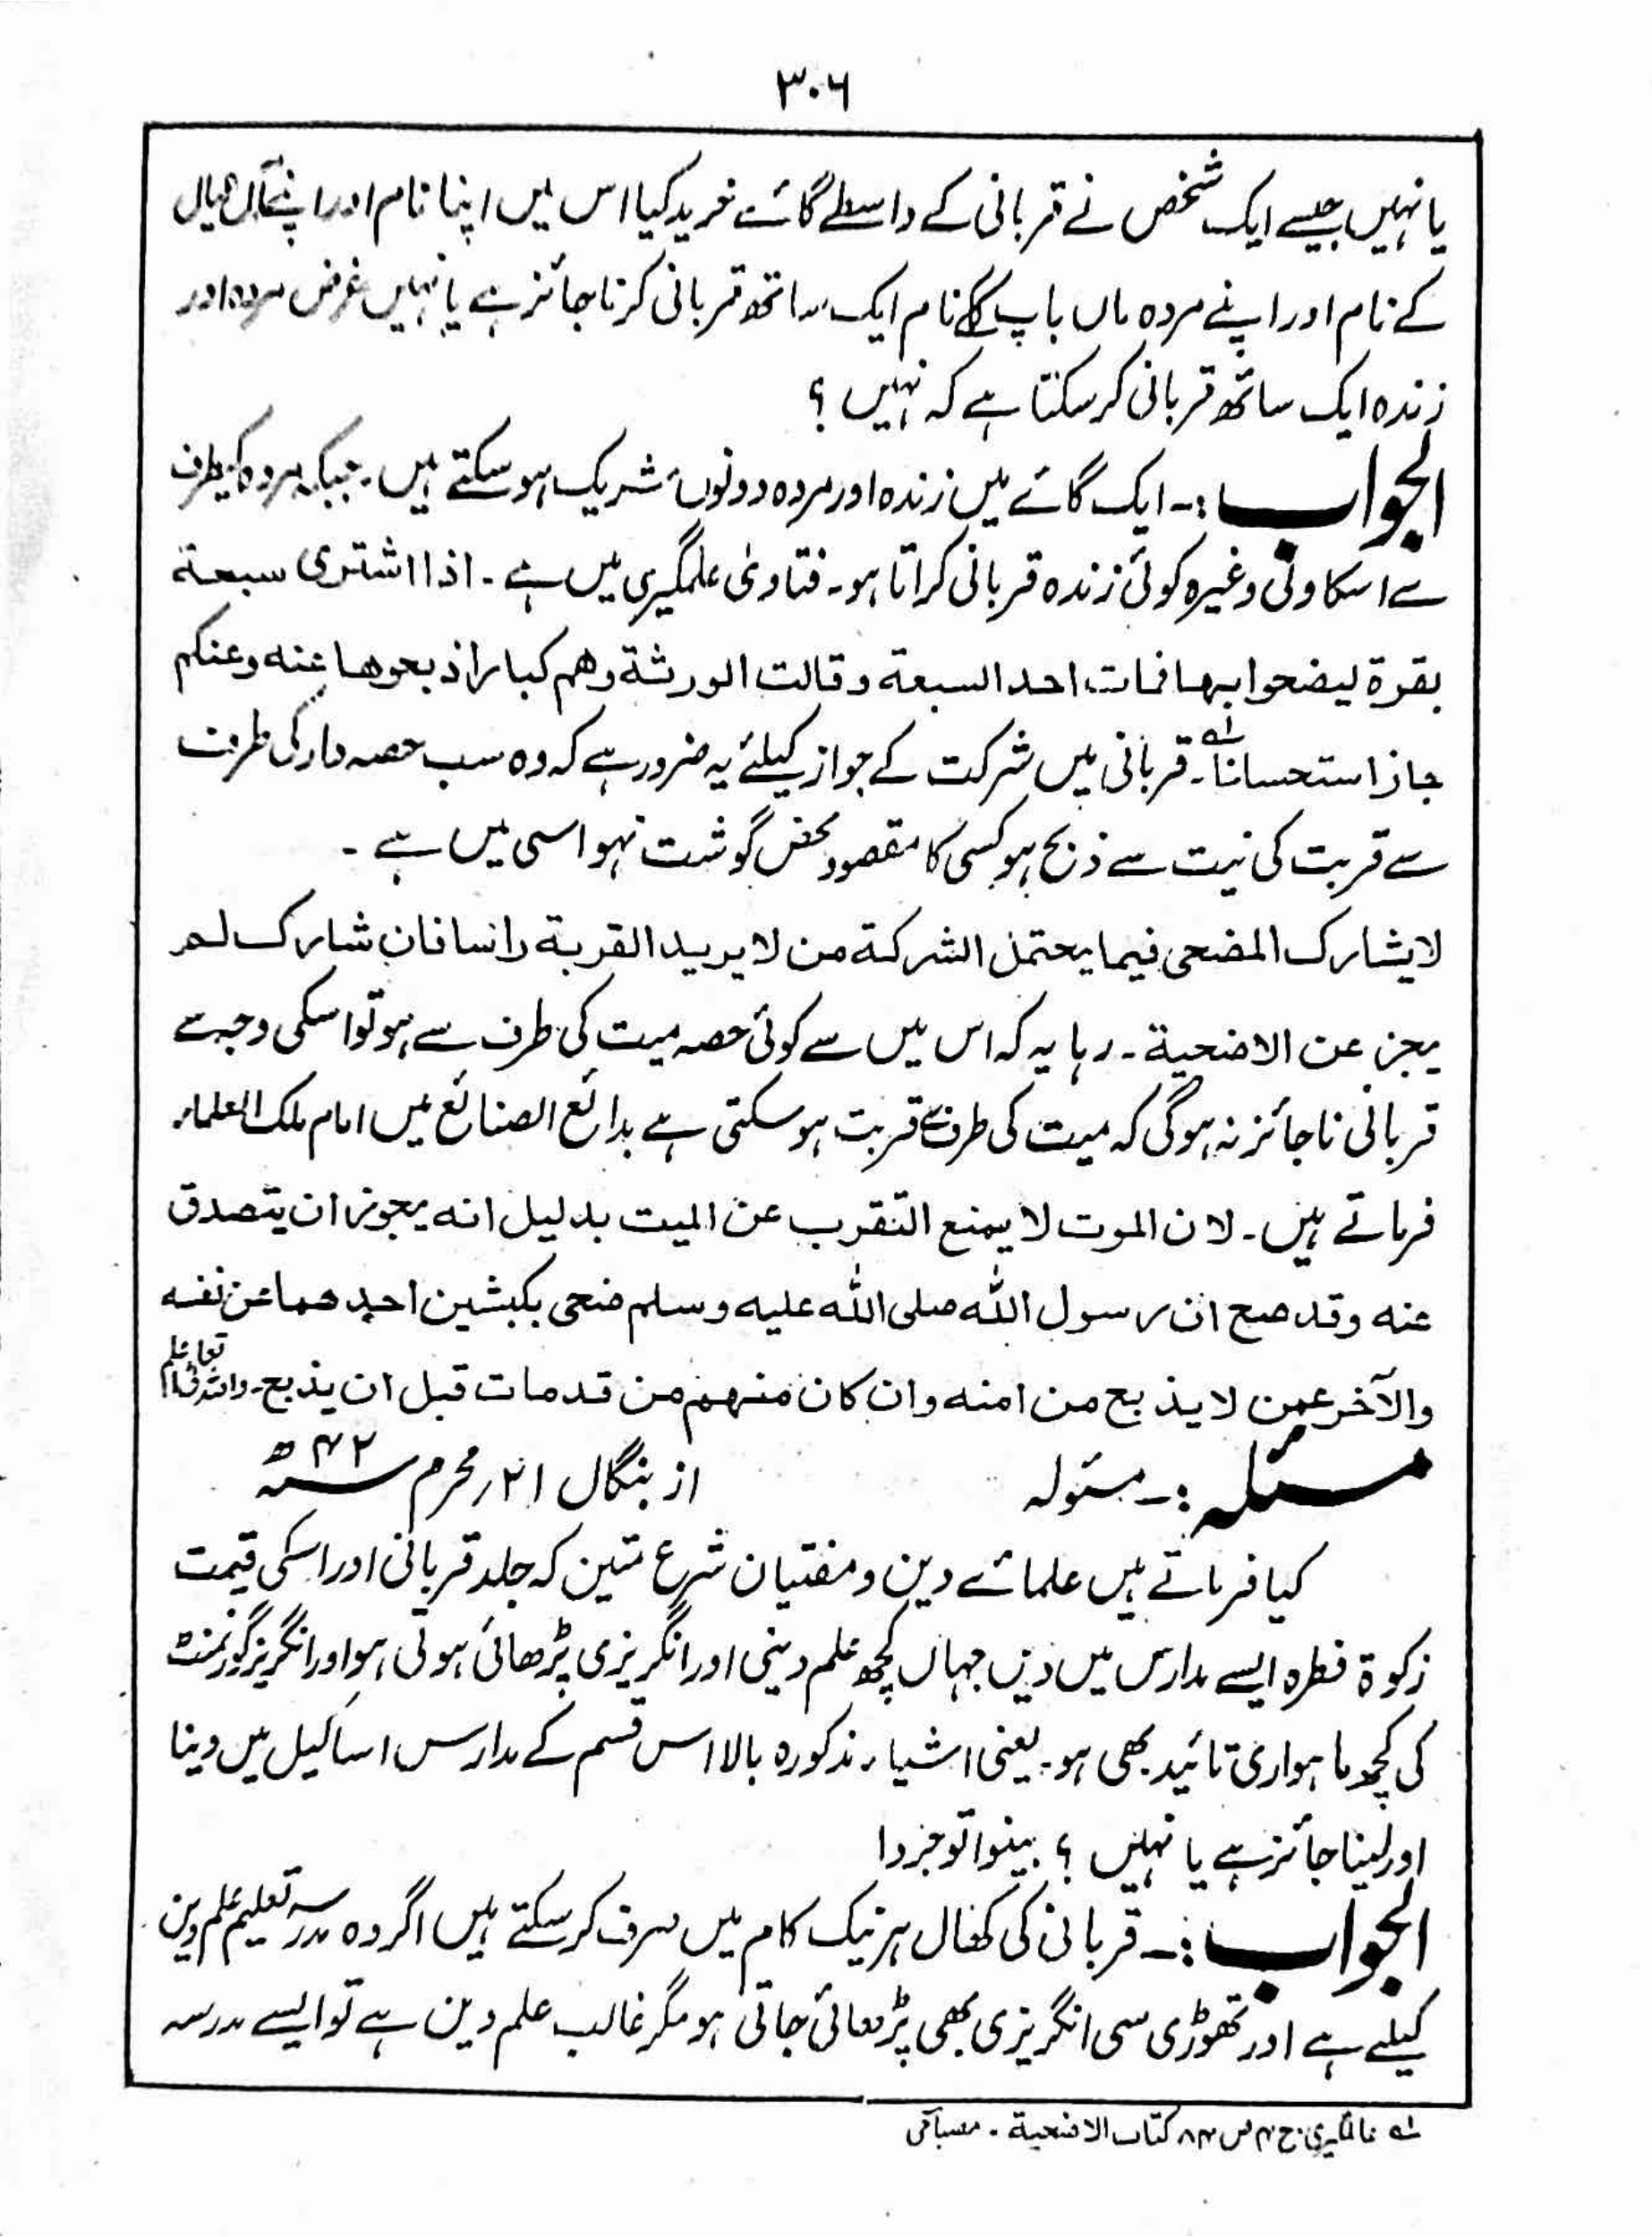 ۳۰۶
یا نہیں جیسے ایک شخص نے قربانی کے واسطے گائے خرید کیا اس میں اپنا نام اور اپنے آل عیال
کے نام اور اپنے مردہ ماں باپ کے نام ایک ساتھ قربانی کرنا جائز ہے یا نہیں غرض مردہ اور
زندہ ایک ساتھ قربانی کر سکتا ہے کہ نہیں ؟
الجواب :۔ ایک گائے میں زندہ اور مردہ دونوں شریک ہو سکتے ہیں۔ جبکہ مردہ کیطرف
سے اسکا ولی وغیرہ کوئی زندہ قربانی کراتا ہو۔ فتاویٰ علمگیری میں ہے۔ اذا اشتری سبعة
بقرة لیضحوا بھا فمات احد السبعة وقالت الورثة وھم کبار اذبحوھا عنه وعنکم
جاز استحسانا۔ لہ قربانی میں شرکت کے جواز کیلئے یہ ضرور ہے کہ وہ سب حصہ دار کی طرف
سے قربت کی نیت سے ذبح ہو کسی کا مقصود محض گوشت نہو اسی میں ہے ۔
لا یشارک المضحی فیما یحتمل الشرکة من لا یرید القربة راسا فان شارک لم
یجز عن الاضحیة۔ رہا یہ کہ اس میں سے کوئی حصہ میت کی طرف سے ہو تو اسکی وجہ سے
قربانی ناجائز نہ ہوگی کہ میت کی طرف سے قربت ہو سکتی ہے بدائع الصنائع میں امام ملک العلماء
فرماتے ہیں۔ لان الموت لا یمنع التقرب عن المیت بدلیل انه یجوز ان یتصدق
عنه وقد صح ان رسول اللہ صلی اللہ علیه وسلم ضحی بکبشین احدھما عن نفسه
والآخر عمن لا یذبح من امته وان کان منھم من قد مات قبل ان یذبح۔ واللہ تعالیٰ اعلم
مسئلہ :۔ مسئولہ از بنگال ۲۱؍ محرم سنہ ۴۲ ھ
کیا فرماتے ہیں علمائے دین و مفتیان شرع متین کہ جلد قربانی اور اسکی قیمت
زکوة فطرہ ایسے مدارس میں دیں جہاں کچھ علم دینی اور انگریزی پڑھائی ہوتی ہو اور انگریز گورنمنٹ
کی کچھ ماہواری تائید بھی ہو۔ یعنی اشیاء مذکورہ بالا اس قسم کے مدارس اساکیل میں دینا
اور لینا جائز ہے یا نہیں ؟ بینوا توجروا
الجواب :۔ قربانی کی کھال ہر نیک کام میں صرف کر سکتے ہیں اگر وہ مدرسہ تعلیم علم دین
کیلئے ہے اور تھوڑی سی انگریزی بھی پڑھائی جاتی ہو مگر غالب علم دین ہے تو ایسے مدرسہ
لہ عالمگیری ج ۴ ص ۸۴ کتاب الاضحیة ۔ مصباحی